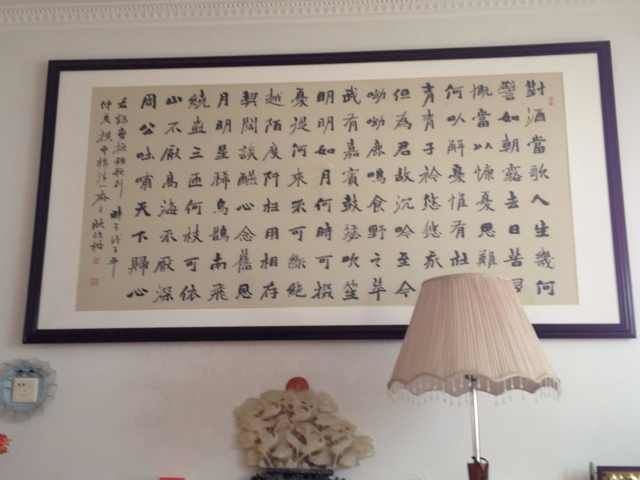 對酒當歌人生幾何
譬如朝露去日苦多
慨當以慷憂思難
何以解憂惟有杜
青青子衿悠悠我
但為君故沉吟至今
呦呦鹿鳴食野之苹
我有嘉賓鼓瑟吹笙
明明如月何時可掇
憂從何來不可斷絕
越陌度阡枉用相存
契闊談讌心念舊恩
月明星稀烏鵲南飛
繞樹三匝何枝可依
山不厭高海不厭深
周公吐哺天下歸心
右錄曹操短歌行